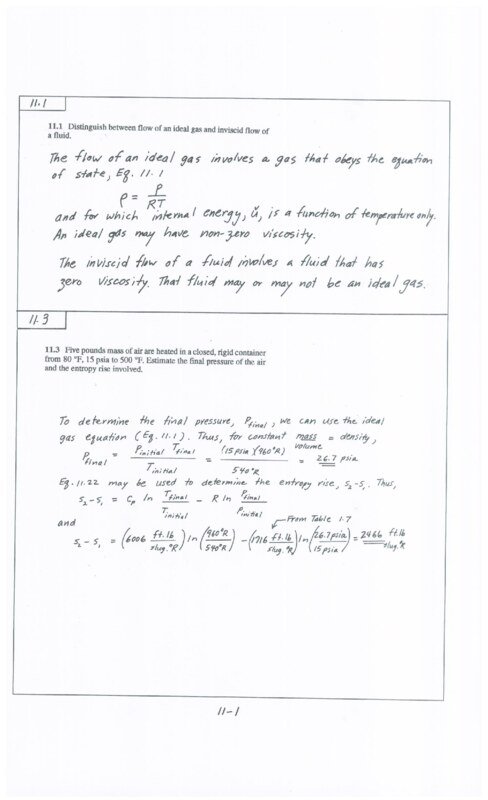 11.1
11.1 Distinguish between flow of an ideal gas and inviscid flow of
a fluid.
The flow of an ideal gas involves a gas that obeys the equation
of state, Eq. 11.1
ρ = p / RT
and for which internal energy, ŭ, is a function of temperature only.
An ideal gas may have non-zero viscosity.
The inviscid flow of a fluid involves a fluid that has
zero viscosity. That fluid may or may not be an ideal gas.
11.3
11.3 Five pounds mass of air are heated in a closed, rigid container
from 80 °F, 15 psia to 500 °F. Estimate the final pressure of the air
and the entropy rise involved.
To determine the final pressure, P final, we can use the ideal
gas equation (Eq. 11.1). Thus, for constant mass / volume = density,
P final = P initial T final / T initial = (15 psia)(960°R) / 540°R = 26.7 psia
Eq. 11.22 may be used to determine the entropy rise, s₂-s₁. Thus,
s₂-s₁ = Cp ln T final / T initial - R ln P final / P initial
and
From Table 1.7
s₂ - s₁ = (6006 ft.lb / slug.°R) ln (960°R / 540°R) - (1716 ft.lb / slug.°R) ln (26.7 psia / 15 psia) = 2466 ft.lb / slug.°R
11-1